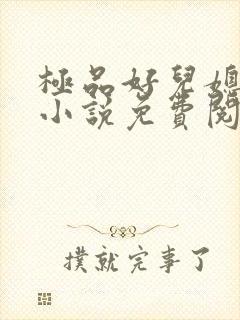 極品好兒媳
小說免費閱
撲就完事了